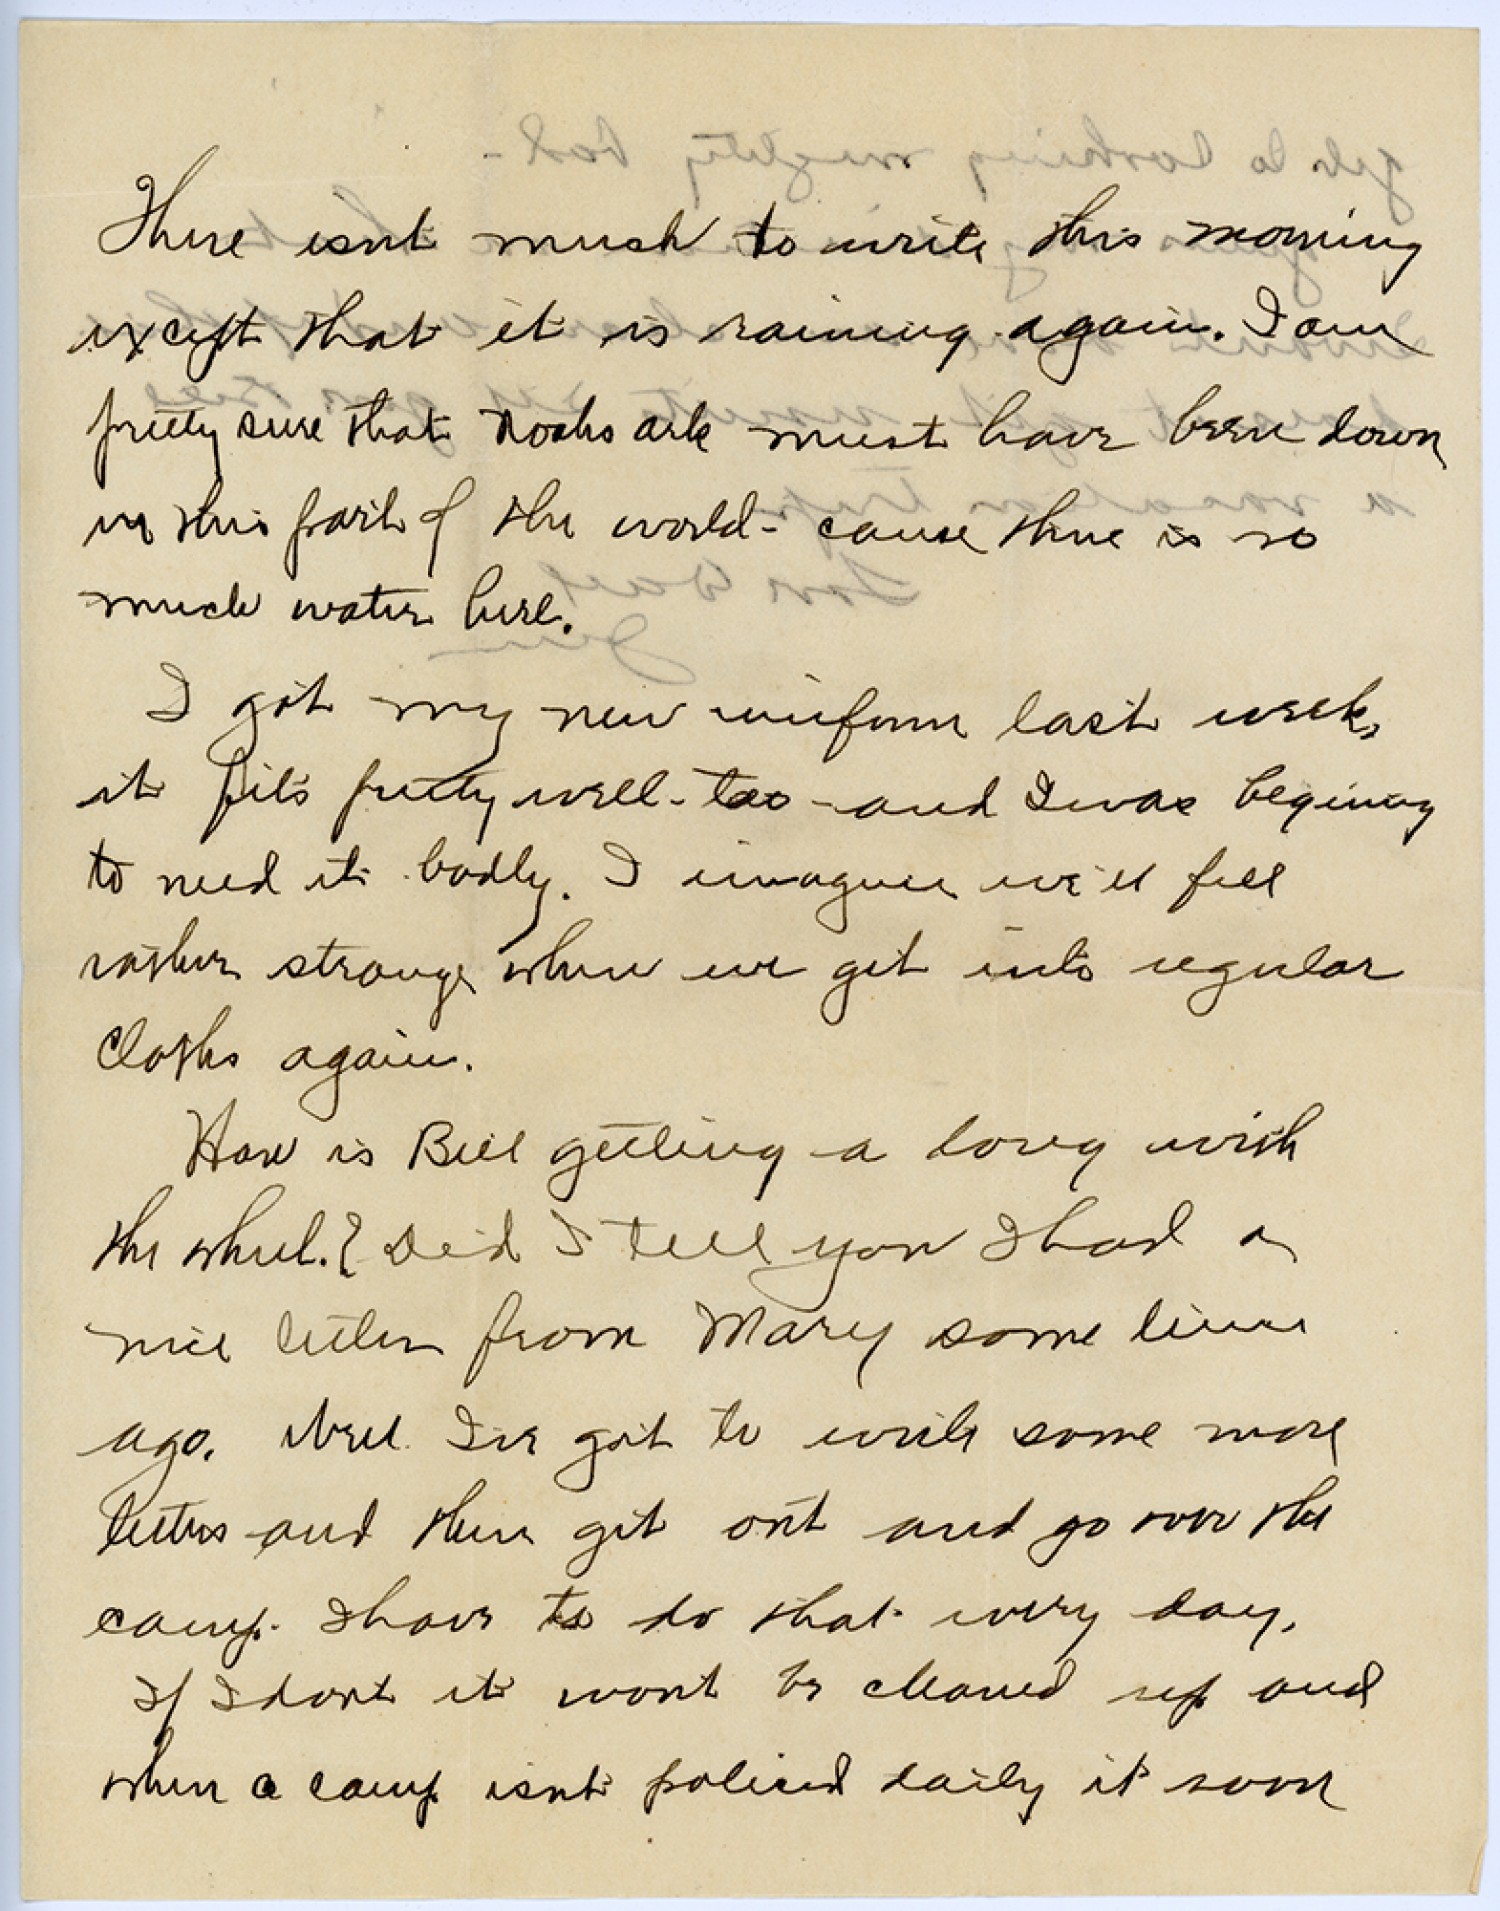 There isnt much to write this morning
except that it is raining again. I am
pretty sure that Noahs ark must have been down
in this part of the world - cause there is so
much water here.
I got my new uniform last week,
it fits pretty well - too - and I was begining
to need it badly. I imagine we'll feel
rather strange when we get into regular
cloths again.
How is Bill getting a long with
the wheel.? Did I tell you I had a
nice letter from Mary some time
ago. Well I've got to write some more
letters and then get out and go over the
camp. I have to do that every day.
If I dont it wont be cleaned up and
when a camp isnt policed daily it soon
gets to looking mighty bad -